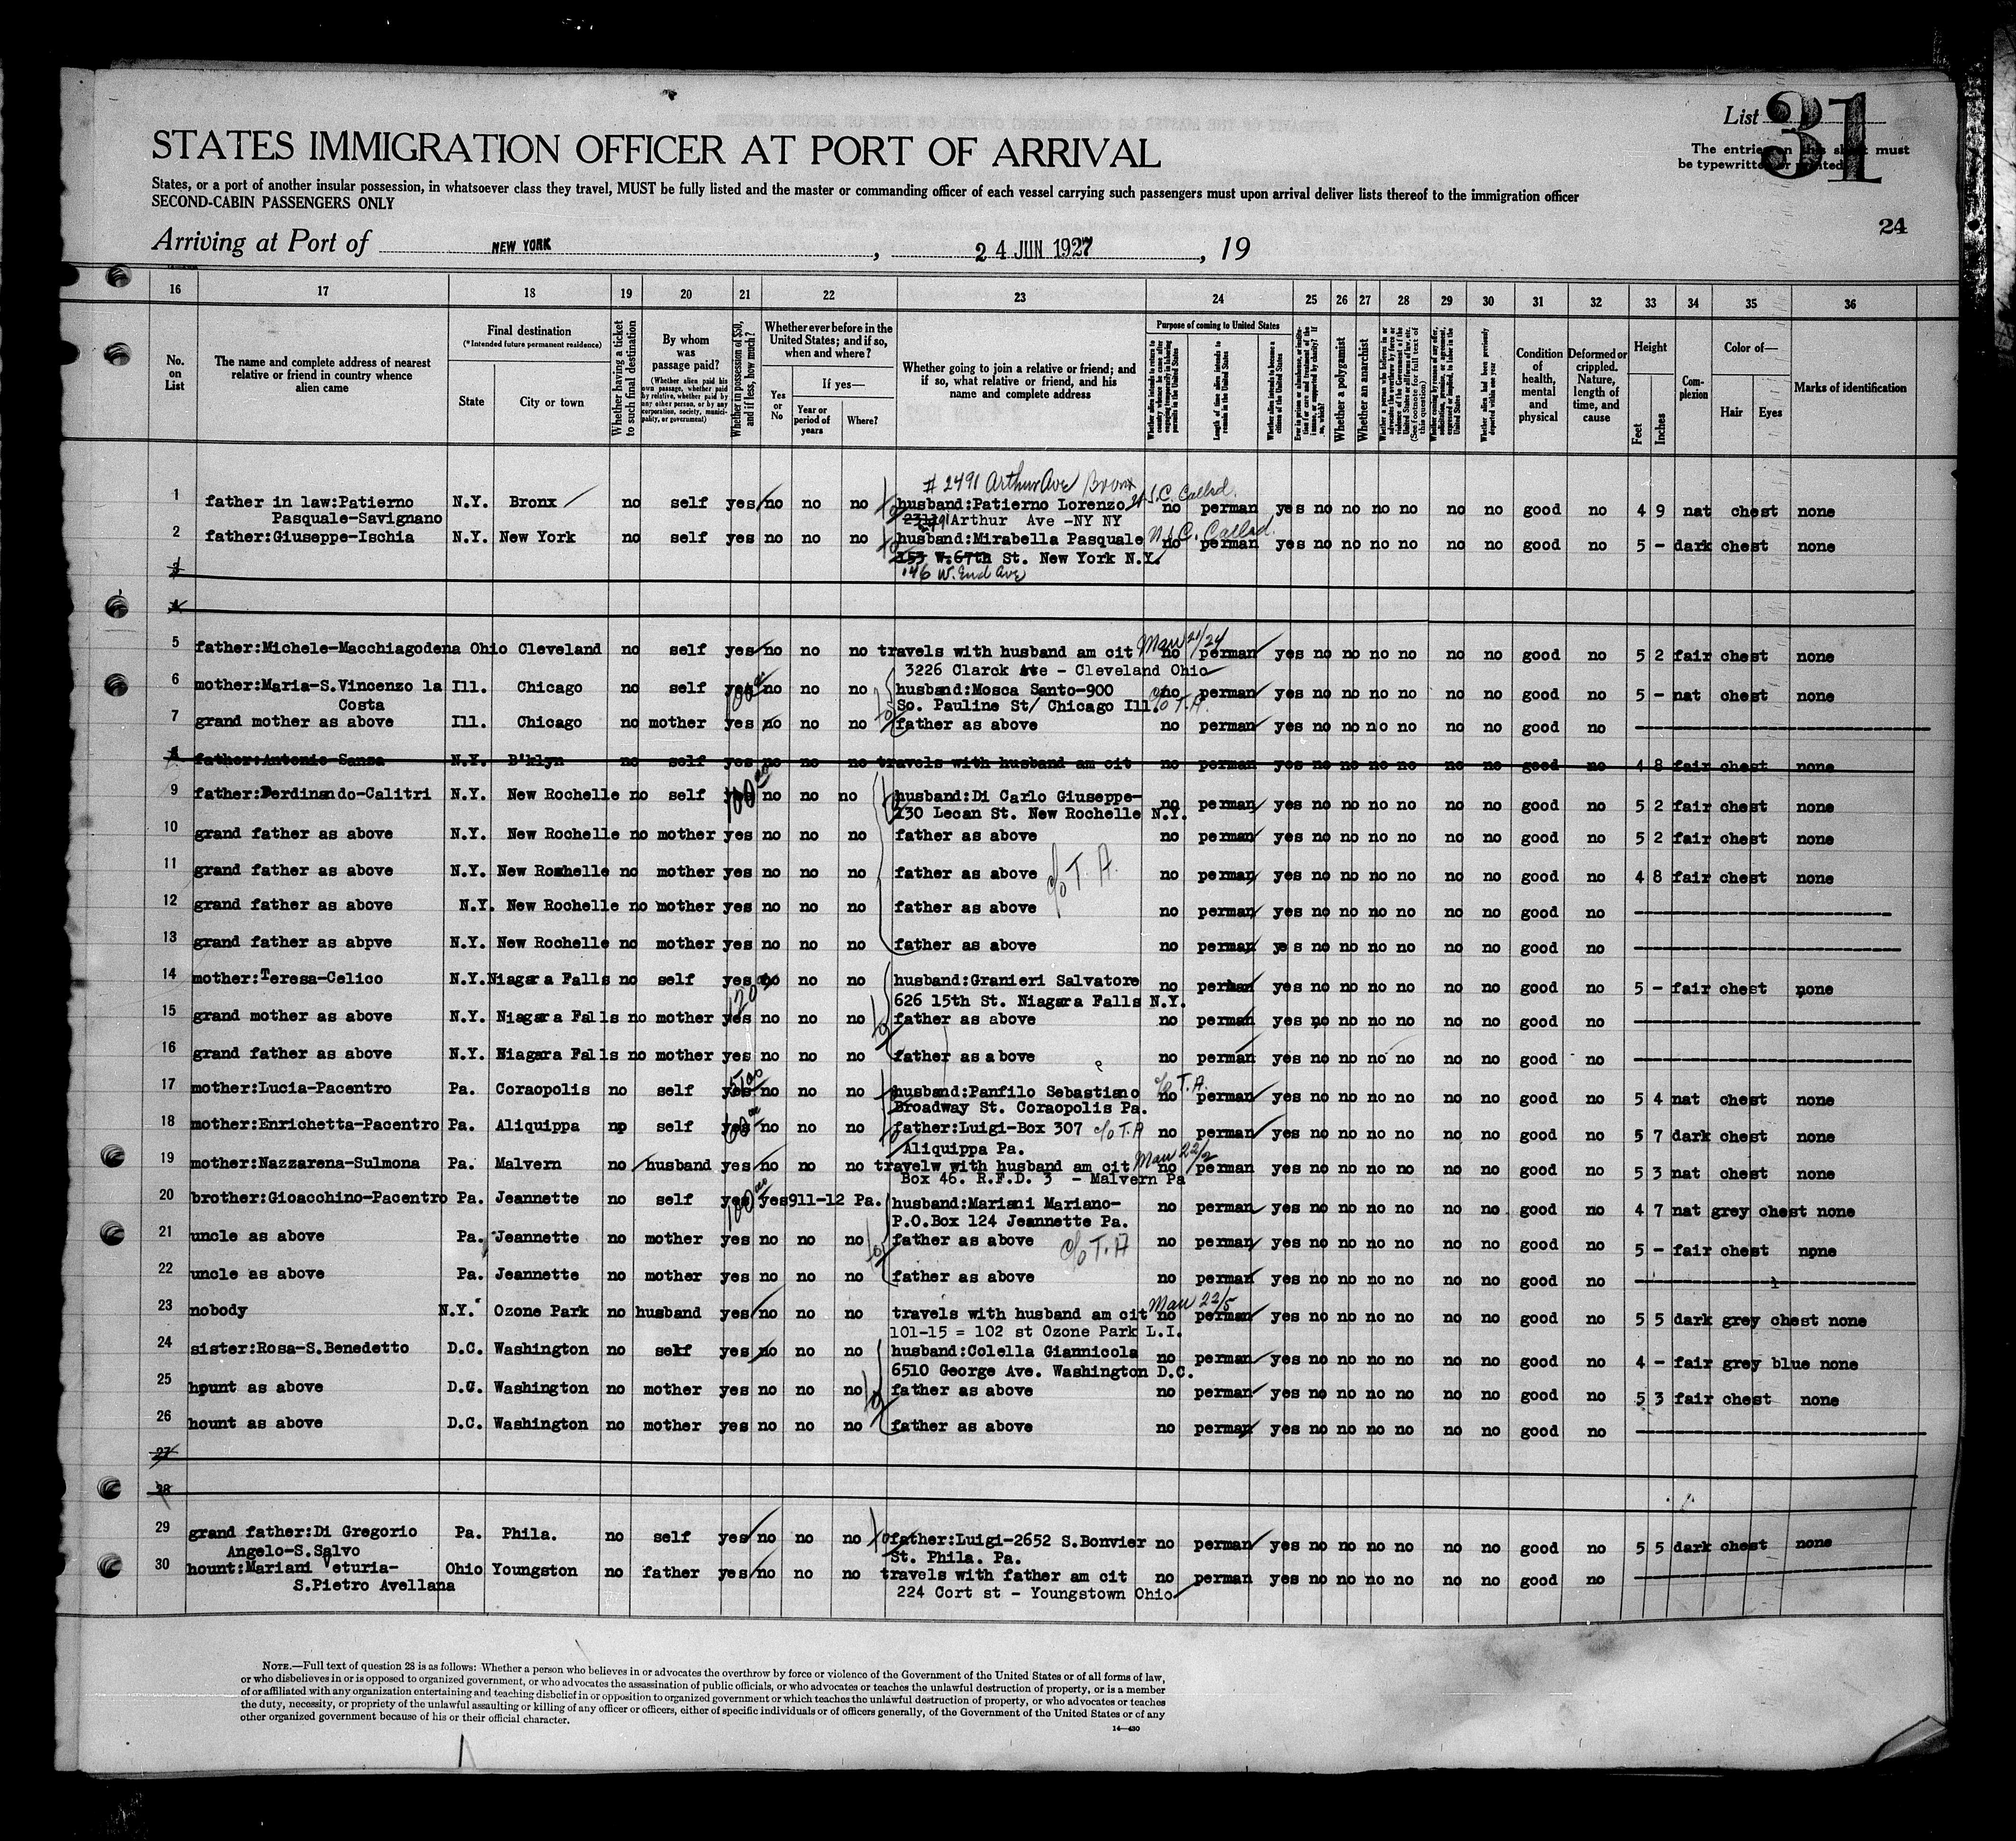 List 31
The entries on this sheet must
be typewritten or printed
STATES IMMIGRATION OFFICER AT PORT OF ARRIVAL
States, or a port of another insular possession, in whatsoever class they travel, MUST be fully listed and the master or commanding officer of each vessel carrying such passengers must upon arrival deliver lists thereof to the immigration officer
SECOND-CABIN PASSENGERS ONLY
24
Arriving at Port of NEW YORK, 24 JUN 1927, 19
16 17 18 19 20 21 22 23 24 25 26 27 28 29 30 31 32 33 34 35 36
No. on List
The name and complete address of nearest relative or friend in country whence alien came
Final destination
(*Intended future permanent residence)
State
City or town
Whether having a ticket to such final destination
By whom was passage paid?
(Whether alien paid his own passage, whether paid by relative, whether paid by any other person, or by any corporation, society, municipality, or government)
Whether in possession of $50, and if less, how much?
Whether ever before in the United States; and if so, when and where?
Yes or No
If yes—
Year or period of years
Where?
Whether going to join a relative or friend; and if so, what relative or friend, and his name and complete address
Purpose of coming to United States
Length of time alien intends to remain in the United States
Whether alien intends to become a citizen of the United States
Whether a polygamist
Whether an anarchist
Whether alien had been previously deported within one year
Condition of health, mental and physical
Deformed or crippled. Nature, length of time, and cause
Height
Feet
Inches
Complexion
Color of—
Hair
Eyes
Marks of identification
# 2491 Arthur Ave Bronx
1 father in law:Patierno N.Y. Bronx no self yes no no no husband:Patierno Lorenzo no perman yes no no no no no no good no 4 9 nat chest none
Pasquale-Savignano Arthur Ave -NY NY
2 father:Giuseppe-Ischia N.Y. New York no self yes no no no husband:Mirabella Pasquale no perman yes no no no no no no good no 5 - dark chest none
153 W.67th St. New York N.Y.
146 W. End Ave
3
4
5 father:Michele-Macchiagodena Ohio Cleveland no self yes no no no travels with husband am cit no perman yes no no no no no no good no 5 2 fair chest none
3226 Clarck Ave - Cleveland Ohio
6 mother:Maria-S.Vincenzo la Ill. Chicago no self yes no no no husband:Mosca Santo-900 no perman yes no no no no no no good no 5 - nat chest none
Costa So. Pauline St/ Chicago Ill. c/o T.A.
7 grand mother as above Ill. Chicago no mother yes no no no father as above no perman yes no no no no no no good no
father:Antonio-Sansa N.Y. B'klyn no self yes no no no travels with husband am cit no perman yes no no no no no no good no 4 8 fair chest none
9 father:Ferdinando-Calitri N.Y. New Rochelle no self yes no no no husband:Di Carlo Giuseppe- no perman yes no no no no no no good no 5 2 fair chest none
130 Lecan St. New Rochelle N.Y.
10 grand father as above N.Y. New Rochelle no mother yes no no no father as above no perman yes no no no no no no good no 5 2 fair chest none
11 grand father as above N.Y. New Rochelle no mother yes no no no father as above c/o T.A. no perman yes no no no no no no good no 4 8 fair chest none
12 grand father as above N.Y. New Rochelle no mother yes no no no father as above no perman yes no no no no no no good no
13 grand father as abpve N.Y. New Rochelle no mother yes no no no father as above no perman ye s no no no no no no good no
14 mother:Teresa-Celico N.Y. Niagara Falls no self yes no no no husband:Granieri Salvatore no perman yes no no no no no no good no 5 - fair chest none
626 15th St. Niagara Falls N.Y.
15 grand mother as above N.Y. Niagara Falls no mother yes no no no father as above no perman yes no no no no no no good no
16 grand father as above N.Y. Niagara Falls no mother yes no no no father as above no perman yes no no no no no no good no
17 mother:Lucia-Pacentro Pa. Coraopolis no self yes no no no husband:Panfilo Sebastiano c/o T.A. no perman yes no no no no no no good no 5 4 nat chest none
Broadway St. Coraopolis Pa.
18 mother:Enrichetta-Pacentro Pa. Aliquippa no self yes no no no father:Luigi-Box 307 c/o T.A no perman yes no no no no no no good no 5 7 dark chest none
Aliquippa Pa.
19 mother:Nazzarena-Sulmona Pa. Malvern no husband yes no no no travelw with husband am cit no perman yes no no no no no no good no 5 3 nat chest none
Box 46. R.F.D. 3 - Malvern Pa
20 brother:Gioacchino-Pacentro Pa. Jeannette no self yes yes 911-12 Pa. husband:Mariani Mariano- no perman yes no no no no no no good no 4 7 nat grey chest none
P.O.Box 124 Jeannette Pa.
21 uncle as above Pa. Jeannette no mother yes no no no father as above c/o T.A no perman yes no no no no no no good no 5 - fair chest none
22 uncle as above Pa. Jeannette no mother yes no no no father as above no perman yes no no no no no no good no
23 nobody N.Y. Ozone Park no husband yes no no no travels with husband am cit no perman yes no no no no no no good no 5 5 dark grey chest none
101-15 = 102 st Ozone Park L.I.
24 sister:Rosa-S.Benedetto D.C. Washington no self yes no no no husband:Colella Giannicola no perman yes no no no no no no good no 4 - fair grey blue none
6510 George Ave. Washington D.C.
25 hpunt as above D.C. Washington no mother yes no no no father as above no perman yes no no no no no no good no 5 3 fair chest none
26 hount as above D.C. Washington no mother yes no no no father as above no perman yes no no no no no no good no
27
28
29 grand father:Di Gregorio Pa. Phila. no self yes no no no father:Luigi-2652 S.Bonvier no perman yes no no no no no no good no 5 5 dark chest none
Angelo-S.Salvo St. Phila. Pa.
30 hount:Mariani Veturia- Ohio Youngston no father yes no no no travels with father am cit no perman yes no no no no no no good no
S.Pietro Avellana 224 Cort st - Youngstown Ohio
NOTE.—Full text of question 28 is as follows: Whether a person who believes in or advocates the overthrow by force or violence of the Government of the United States or of all forms of law,
or who disbelieves in or is opposed to organized government, or who advocates the assassination of public officials, or who advocates or teaches the unlawful destruction of property, or is a member
of or affiliated with any organization entertaining and teaching disbelief in or opposition to organized government or which teaches the unlawful destruction of property, or who advocates or teaches
the duty, necessity, or propriety of the unlawful assaulting or killing of any officer or officers, either of specific individuals or of officers generally, of the Government of the United States or of any
other organized government because of his or their official character.
14—430